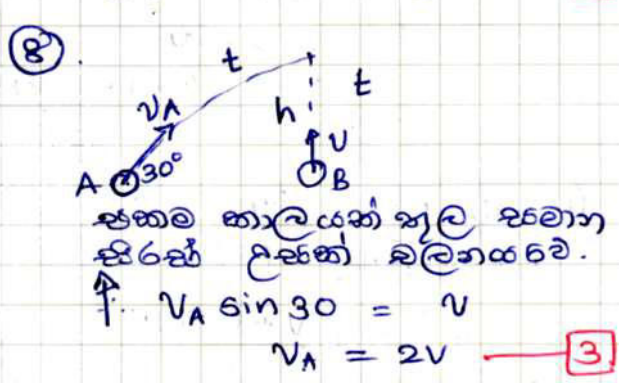 8
t
t
vA
h
v
A
30°
B
එකම කාලයක් තුල සමාන
සිරස් උසක් චලනය වේ.
↑ vA sin 30 = v
vA = 2v 3